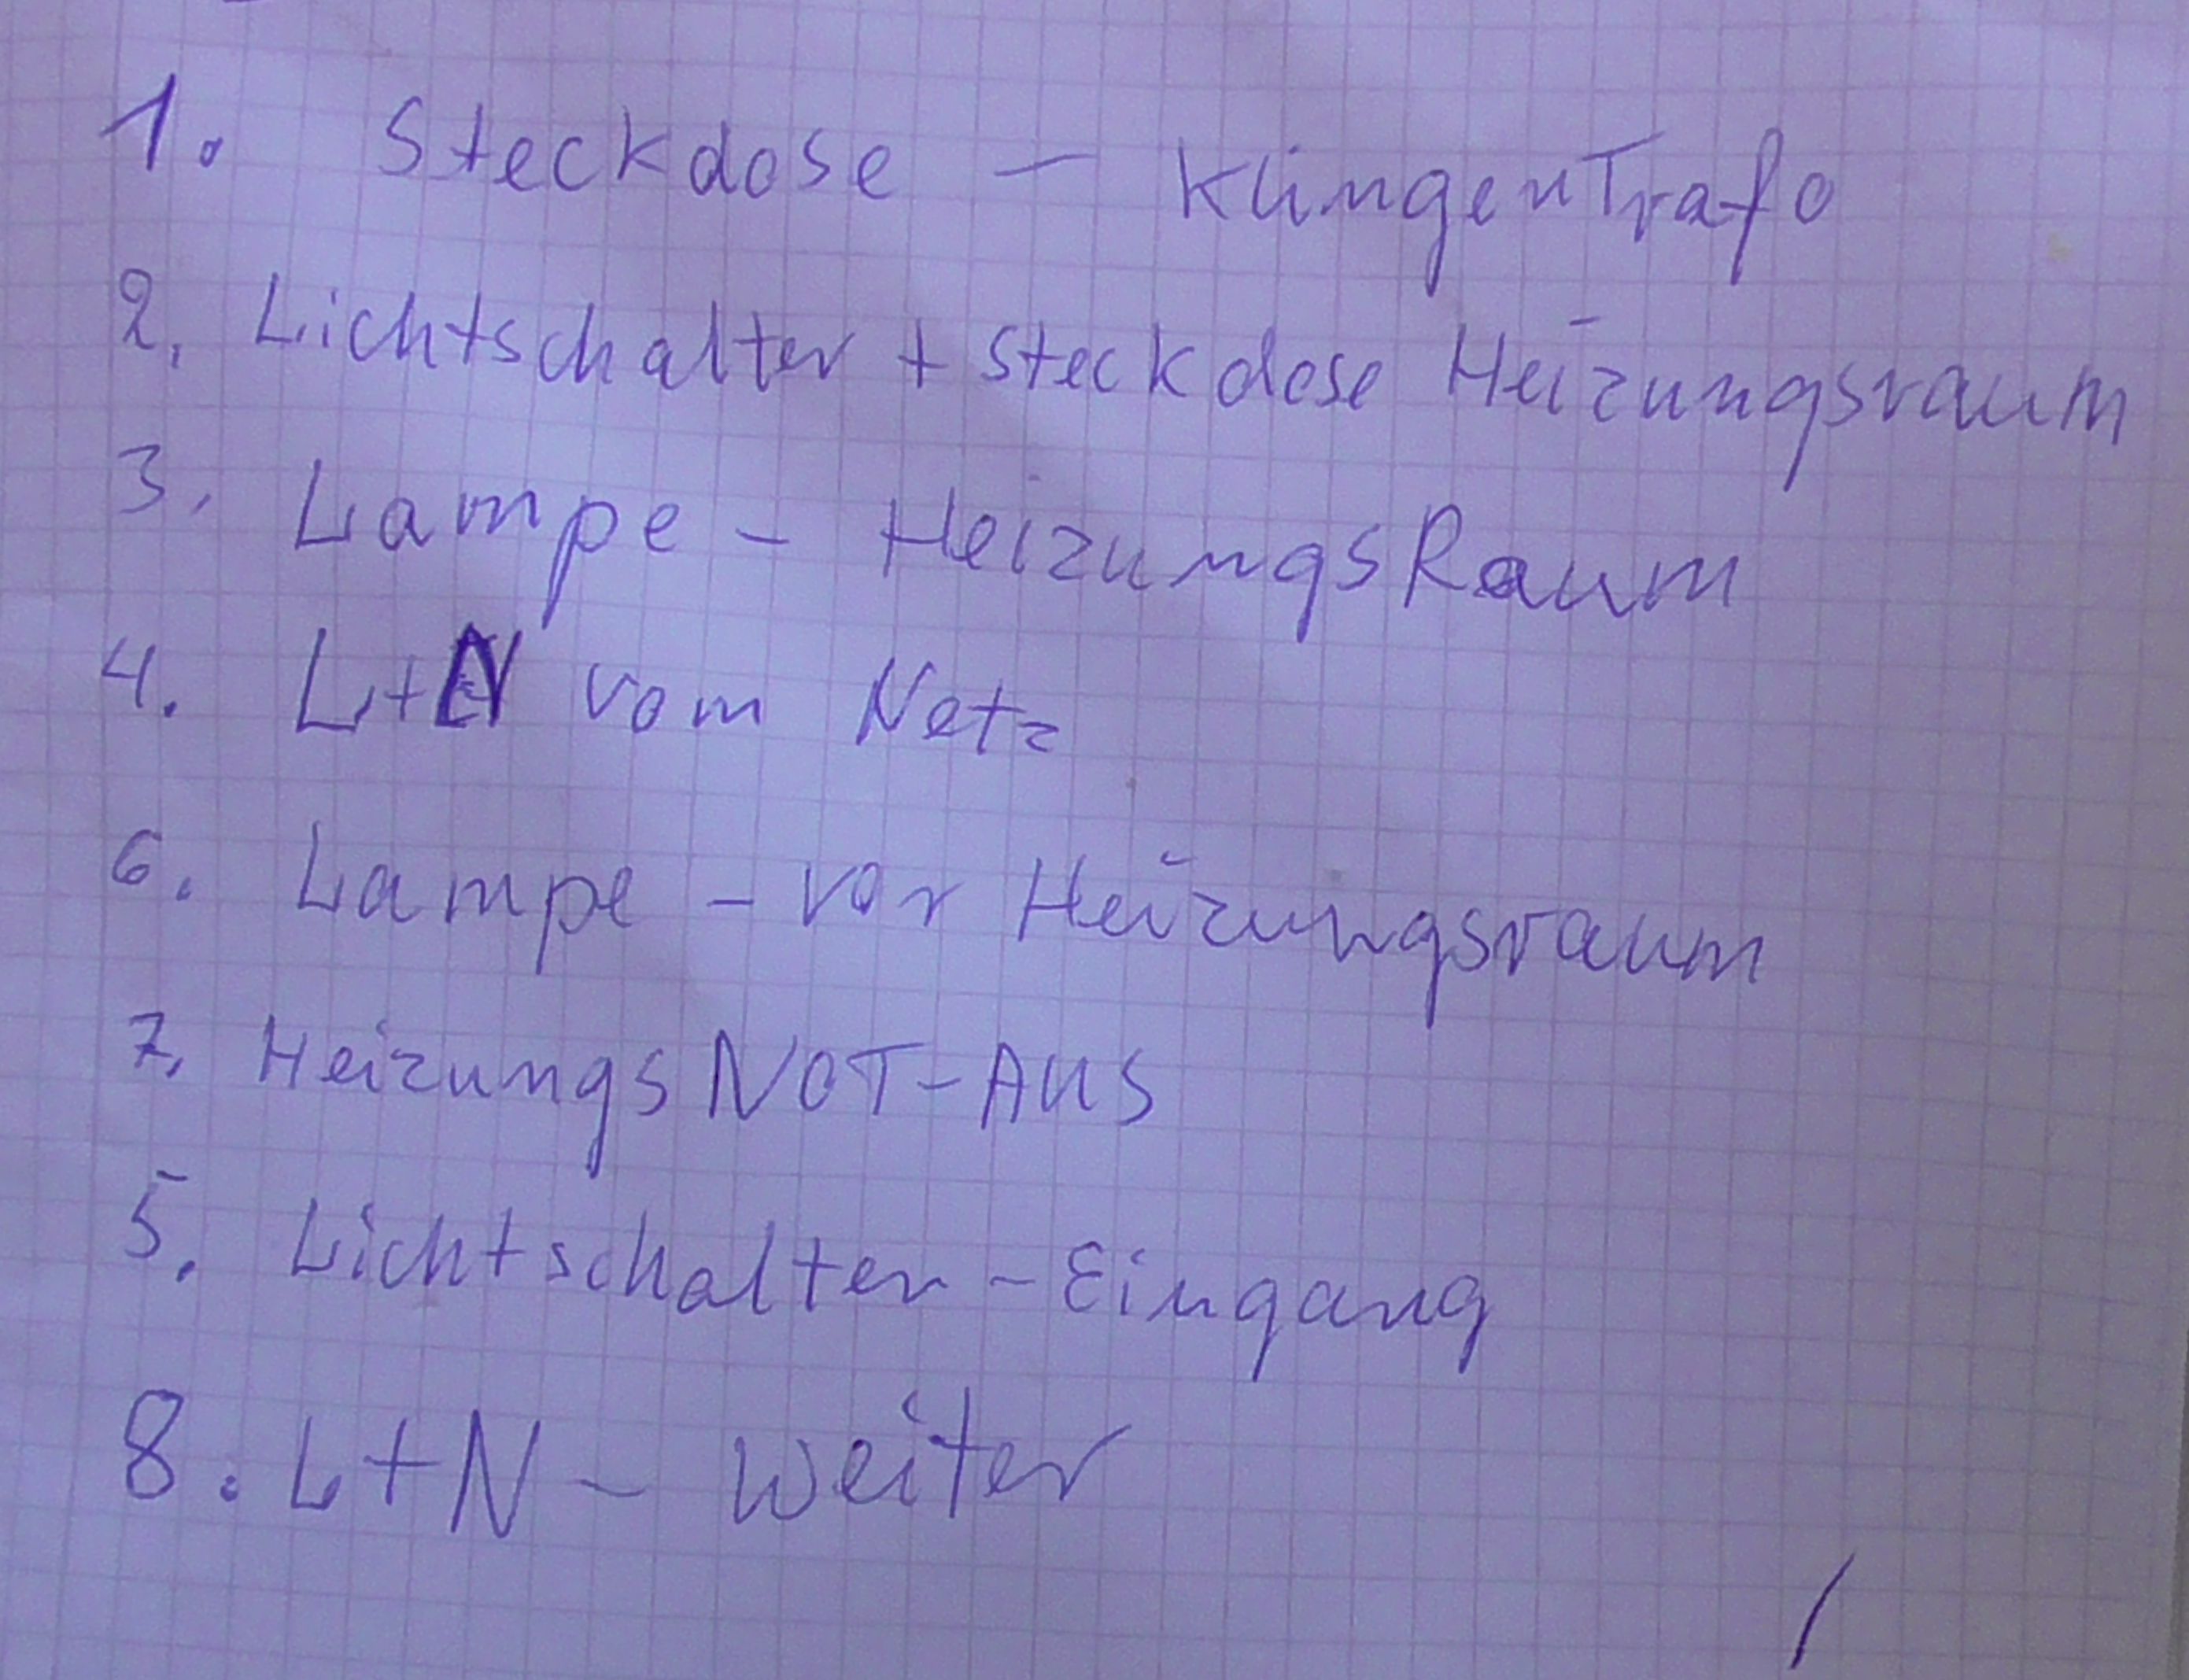 1. Steckdose – KlingenTrafo
2. Lichtschalter + Steckdose Heizungsraum
3. Lampe – HeizungsRaum
4. L+N vom Netz
6. Lampe – vor Heizungsraum
7. Heizungs NOT-AUS
5. Lichtschalter – Eingang
8. L+N – weiter